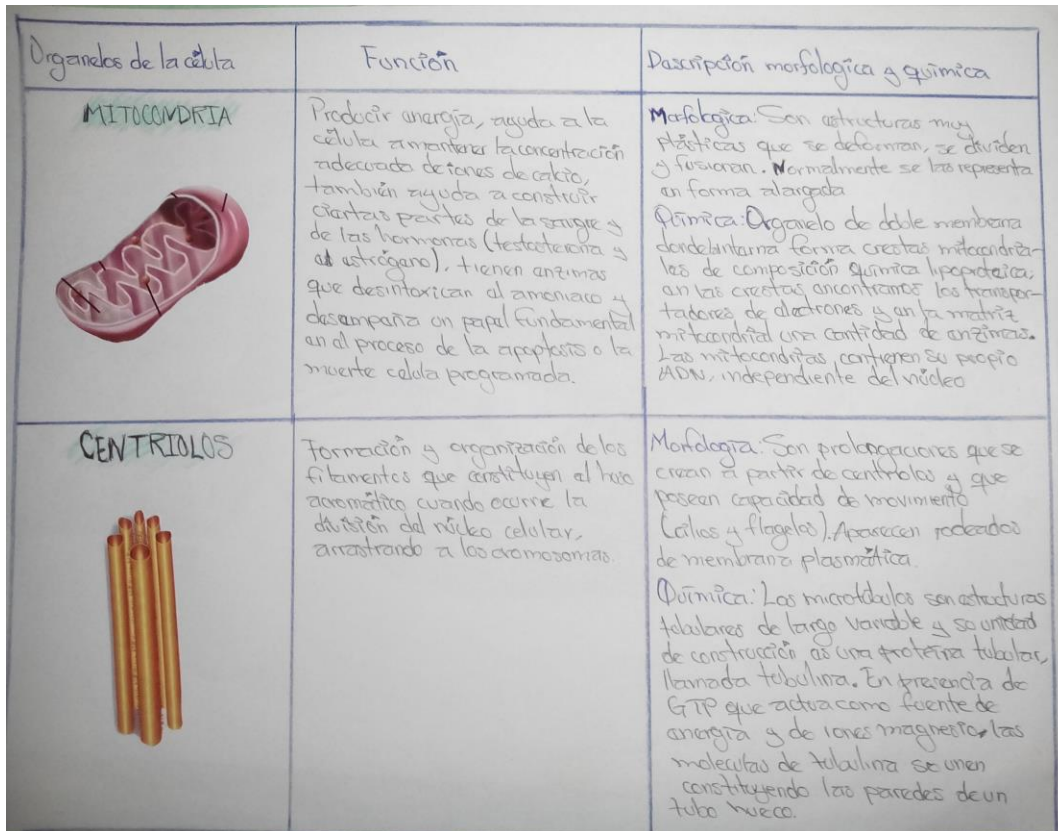 Organelos de la célula
Función
Descripción morfologica y química
MITOCONDRIA
Producir energía, ayuda a la
célula a mantener la concentración
adecuada de iones de calcio,
también ayuda a construir
ciertas partes de la sangre y
de las hormonas (testosterona y
el estrógeno), tienen enzimas
que desintoxican el amoniaco y
desempeña un papel fundamental
en el proceso de la apoptosis o la
muerte celula programada.
Morfologica: Son estructuras muy
plásticas que se deforman, se dividen
y fusionan. Normalmente se las representa
en forma alargada
Química: Organelo de doble membrana
donde la interna forma crestas mitocondria-
les de composición química lipoproteica;
en las crestas encontramos los transpor-
tadores de electrones y en la matriz
mitocondrial una cantidad de enzimas.
Las mitocondrias, contienen su propio
ADN, independiente del núcleo
CENTRIOLOS
Formación y organización de los
filamentos que constituyen el huso
acromático cuando ocurre la
división del núcleo celular,
arrastrando a los cromosomas.
Morfología: Son prolongaciones que se
crean a partir de centriolos y que
poseen capacidad de movimiento
(cilios y flagelos). Aparecen rodeados
de membrana plasmática.
Química: Los microtúbulos son estructuras
tubulares de largo variable y su unidad
de construcción es una proteína tubular,
llamada tubulina. En presencia de
GTP que actúa como fuente de
energía y de iones magnesio, las
moleculas de tubulina se unen
constituyendo las paredes de un
tubo hueco.